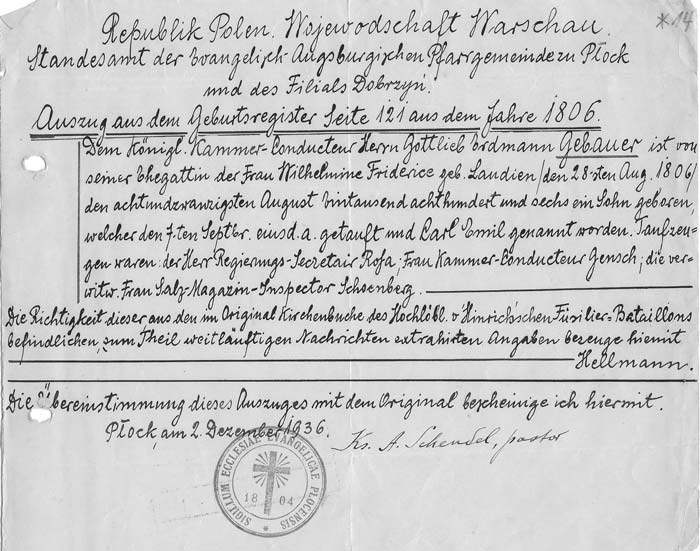 *14
Republik Polen. Wojewodschaft Warschau.
Standesamt der Evangelisch-Augsburgischen Pfarrgemeinde zu Płock
und des Filials Dobrzyń.
Auszug aus dem Geburtsregister Seite 121 aus dem Jahre 1806.
Dem Königl. Kammer-Conducteur Herrn Gottlieb Erdmann Gebauer ist von
seiner Ehegattin der Frau Wilhelmine Friderice geb. Laudien /den 28-sten Aug. 1806/
den achtundzwanzigsten August eintausend achthundert und sechs ein Sohn geboren,
welcher den 7-ten Septbr. eiusd. a. getauft und Carl Emil genannt worden. Taufzeu-
gen waren: der Herr Regierungs-Secretair Rosa; Frau Kammer-Conducteur Gensch; die ver-
witw. Frau Salz-Magazin-Inspector Schoenberg.
Die Richtigkeit dieser aus den im Original Kirchenbuche des Hochlöbl. v Hinrich'schen Füsilier-Bataillons
befindlichen, zum Theil weitläuftigen Nachrichten extrahirten Angaben bezeuge hiemit
Hellmann.
Die Übereinstimmung dieses Auszuges mit dem Original bescheinige ich hiermit.
Płock, am 2. Dezember 1936.
Ks. A. Schendel, pastor
SIGILLUM ECCLESIAE EVANGELICAE PLOCENSIS
18 04